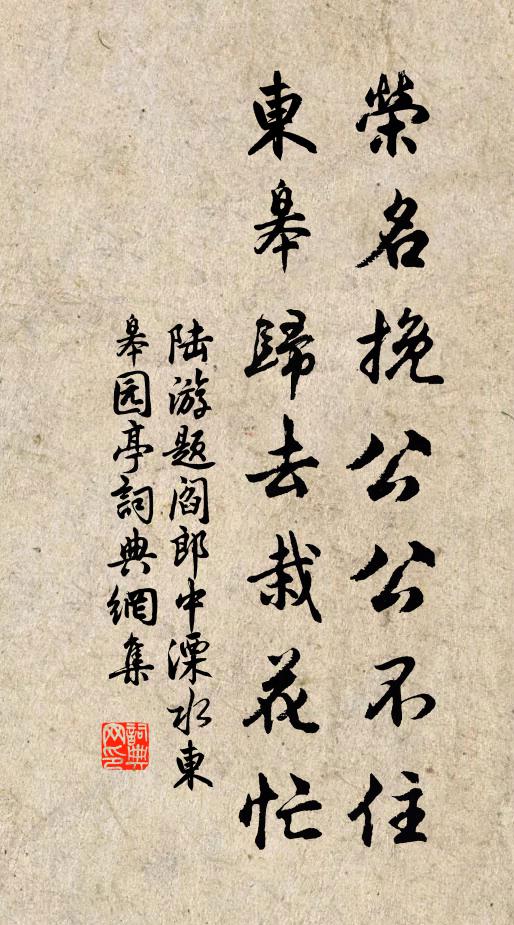 榮名挽公公不住
東皋歸去栽花忙
陆游题阎郎中溧水東
皋园亭詞典網集
詞典網印